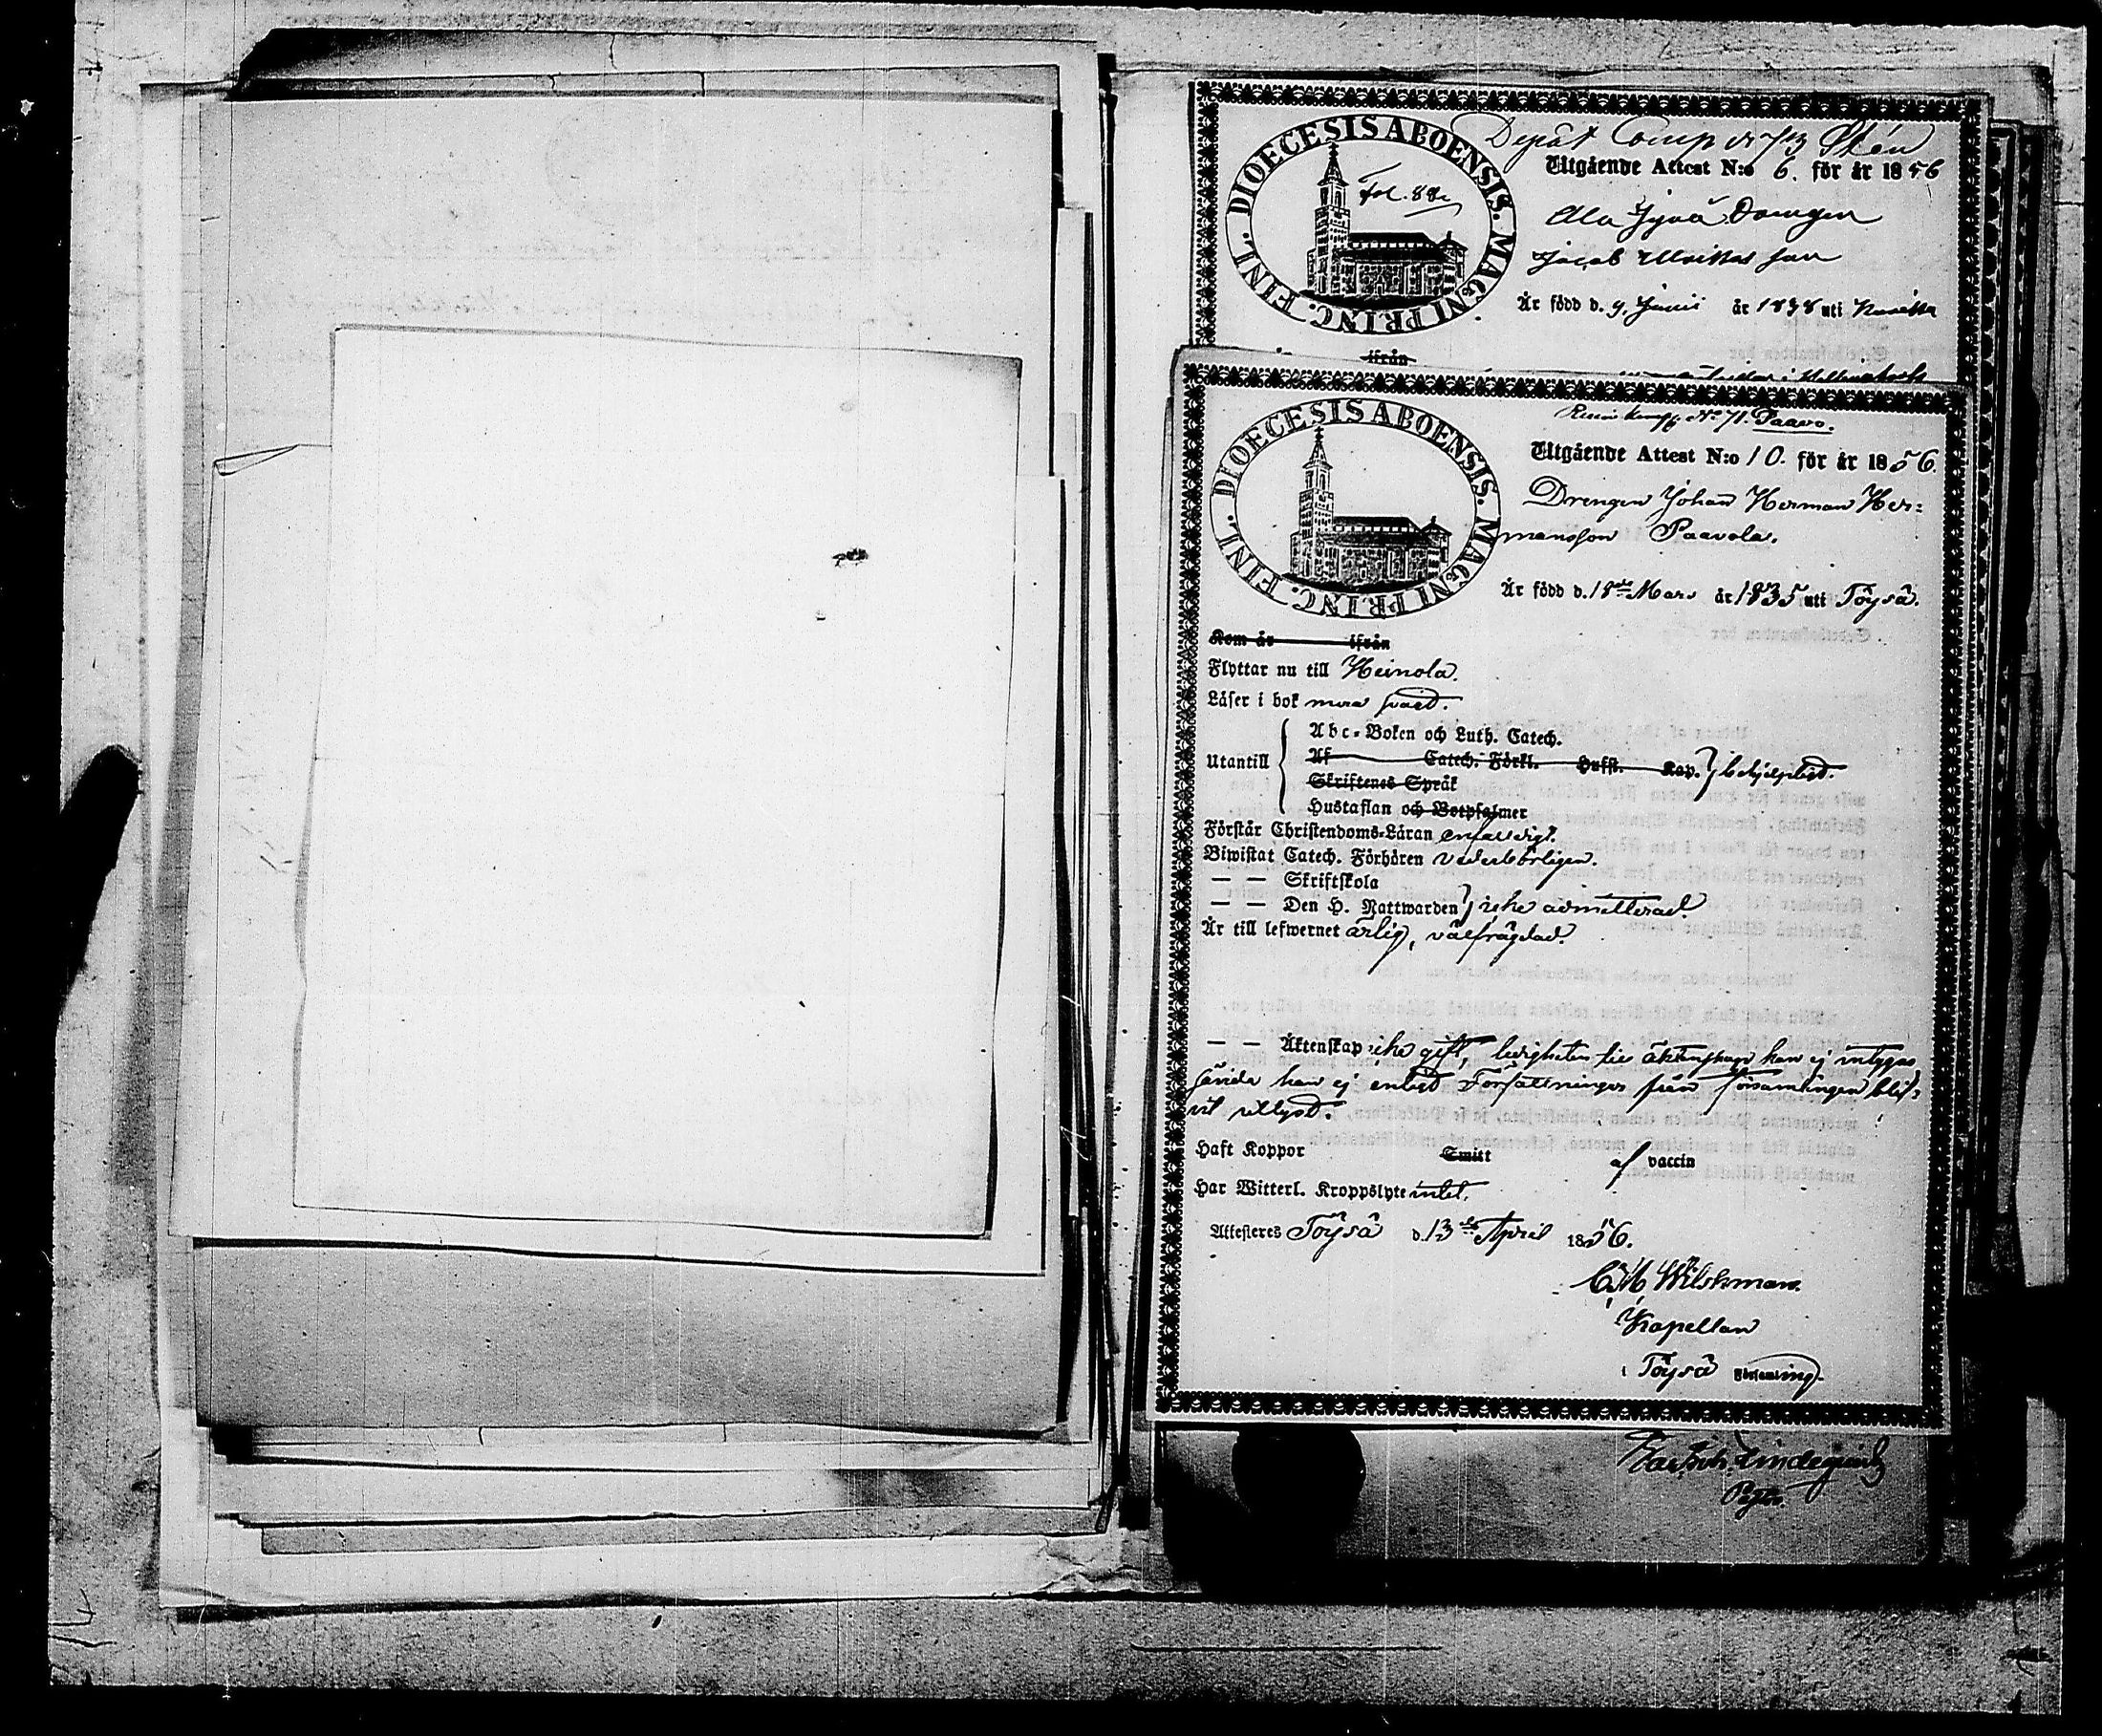 DIOECESIS ABOENSIS. MAGNI PRINC. FINL.
Fol. 88
Depât Comp Stén
Utgående Attest N:o 6. för år 1856
Ala Drengen
Jacob son
Är född d. 9. Junii år 1838 uti
ifrån
DIOECESIS ABOENSIS. MAGNI PRINC. FINL.
No 71. Paavo.
Utgående Attest N:o 10. för år 1856.
Drengen Johan Herman Her=
mansson Paavola.
Är född d. 18de Mars år 1835 uti Töysä.
Kom år ifrån
Flyttar nu till Heinola.
Läser i bok mera svagt.
Abc-Boken och Luth. Catech.
Utantill Af Catech. Förkl. Hufst. Kap. } behjelpligt.
Skriftenes Språk
Hustaflan och Botpsalmer
Förstår Christendoms-Läran enfaldigt.
Biwistat Catech. Förhören vederbörligen.
— — Skriftskola
— — Den H. Nattwarden } icke admitterad.
Är till lefwernet ärlig, välfrägdad.
— — Äktenskap icke gift, ledigheten till äktenskap kan ej intygas
han ej enligt Författningen från församlingen blif=
vit utlyst.
Haft Koppor Smitt af vaccin
Har Witterl. Kroppslyte intet.
Attesteres Töysä d. 13de April 1856.
Wilskman.
Kapellan
i Töysä Församling
Lindeqvist
Pastor